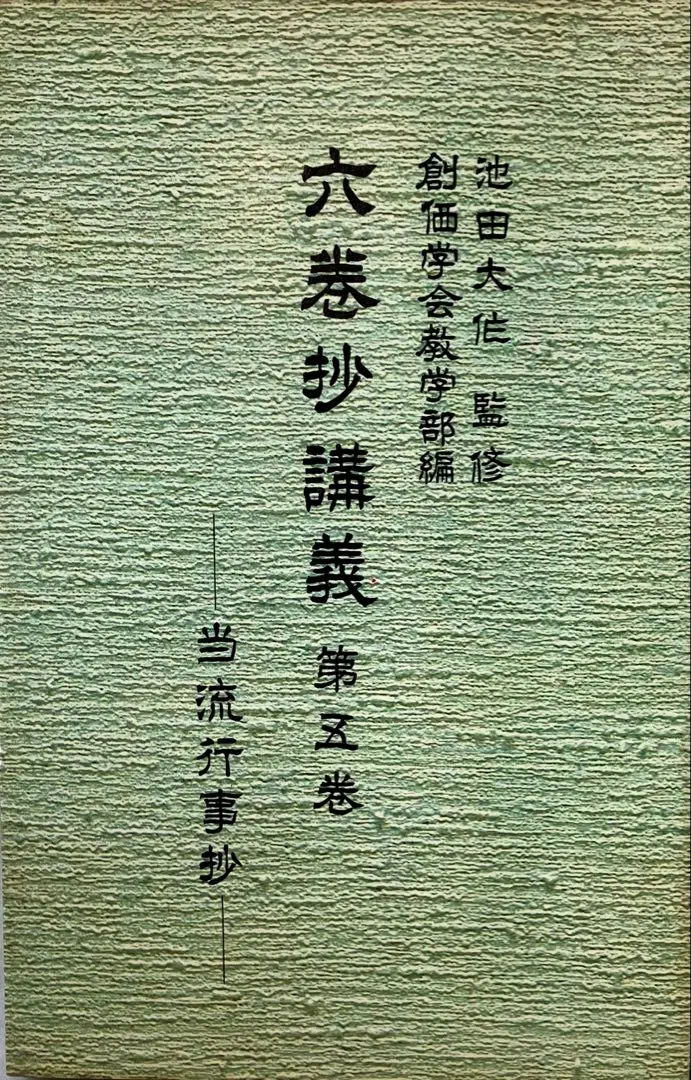 池田大作 監修
創価学会教学部編
六巻抄講義 第五巻
―当流行事抄―